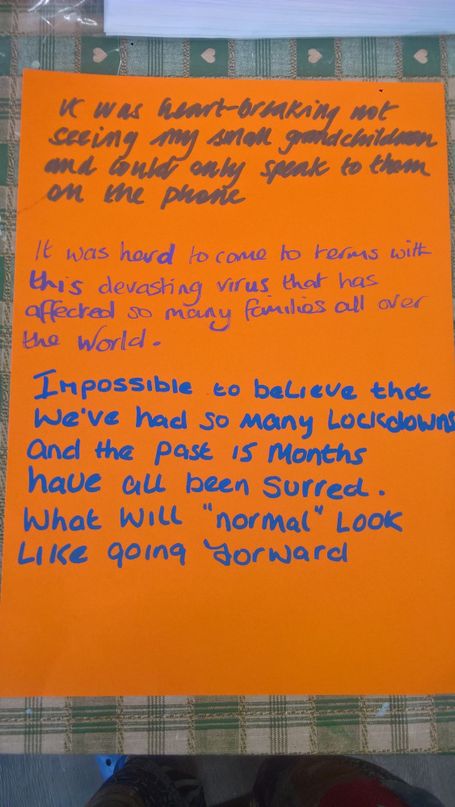 It was heart-breaking not
seeing my small grandchildren
and could only speak to them
on the phone
It was hard to come to terms with
this devasting virus that has
affected so many families all over
the world.
Impossible to believe that
We've had so many Lockdowns
and the past 15 Months
have all been surred.
What will "normal" Look
Like going forward